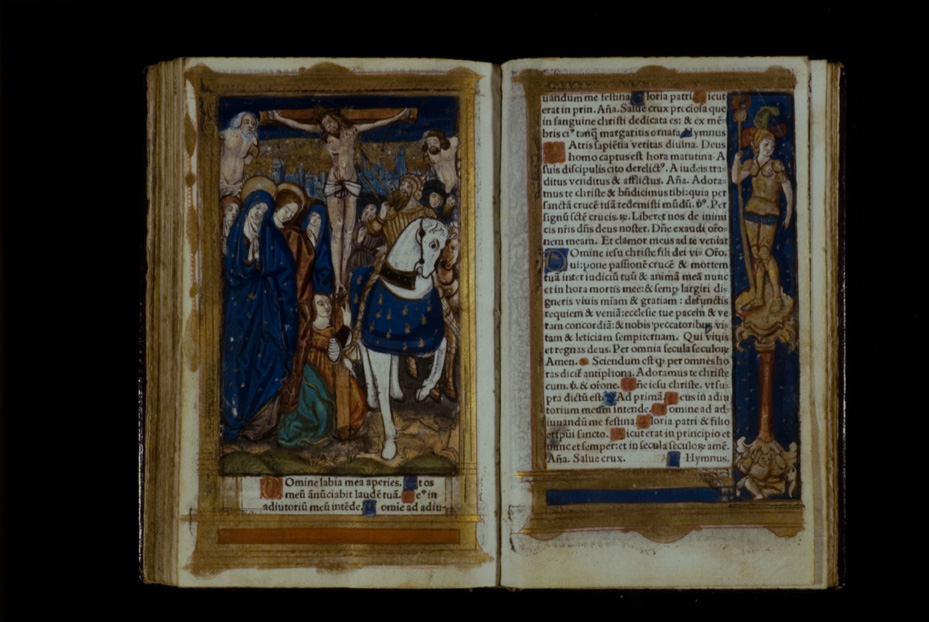 Omine labia mea aperies. Et os
meū ānūciabit laudē tuā. De⁹ in
adiutoriū meū intēde. D omīe ad adiu-
uandum me festina. Gloria patri. Sicut
erat in prin. Aña. Salue crux preciosa que
in sanguine christi dedicata es: & ex mē-
bris ei⁹ tanq̄ margaritis ornata. Hymnus
PAtris sapiētia veritas diuina. Deus
homo captus est hora matutina. A
suis discipulis cito derelict⁹. A iudeis tra-
ditus venditus & afflictus. Aña. Adora-
mus te christe & bñdicimus tibi: quia per
sanctā crucē tuā redemisti mūdū. v̄⁹. Per
signū sctē crucis. ꝶ. Liberet nos de inimi
cis nr̄is dñs deus noster. Dñe exaudi oro-
nem meam. Et clamor meus ad te veniat
DOmine iesu christe fili dei vi- Oro.
ui: pone passionē crucē & mortem
tuā inter iudiciū tuū & animā meā nunc
et in hora mortis mee: & semp largiri di-
gneris viuis mīam & gratiam: defunctis
requiem & veniā: ecclesie tue pacem & ve
ram concordiā: & nobis peccatoribus vi-
tam & leticiam sempiternam. Qui viuis
et regnas deus. Per omnia secula seculoꝝ
Amen. Sciendum est ꝙ per omnes ho
ras dicit̄ antiphona. Adoramus te christe
cum. v̄. & orōne. Dñe iesu christe. vt su-
pra dictū est. Ad primā. Deus in adiu
torium meum intende. Domine ad ad-
iuuandū me festina. Gloria patri & filio
et spūi sancto. Sicut erat in principio et
nunc et semper: et in secula seculoꝝ amē.
Aña. Salue crux. Hymnus.